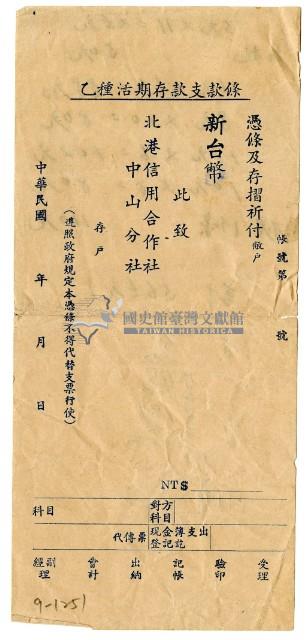 乙種活期存款支款條
帳號第　　號
憑條及存摺祈付敝户
新台幣
此致
北港信用合作社
中山分社
存户
(遵照政府規定本憑條不得代替支票行使)
中華民國　年　月　日
國史館臺灣文獻館
TAIWAN HISTORICA
NT$
科目　對方科目
代傳票　現金簿支出登記訖
經副理　會計　出納　記帳　驗印　受理
9-1251